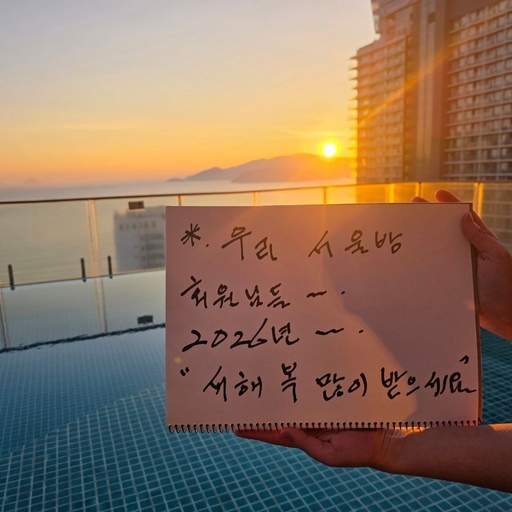 ※. 우리 서울방
회원님들 ~.
2026년 ~.
"새해 복 많이 받으세요"